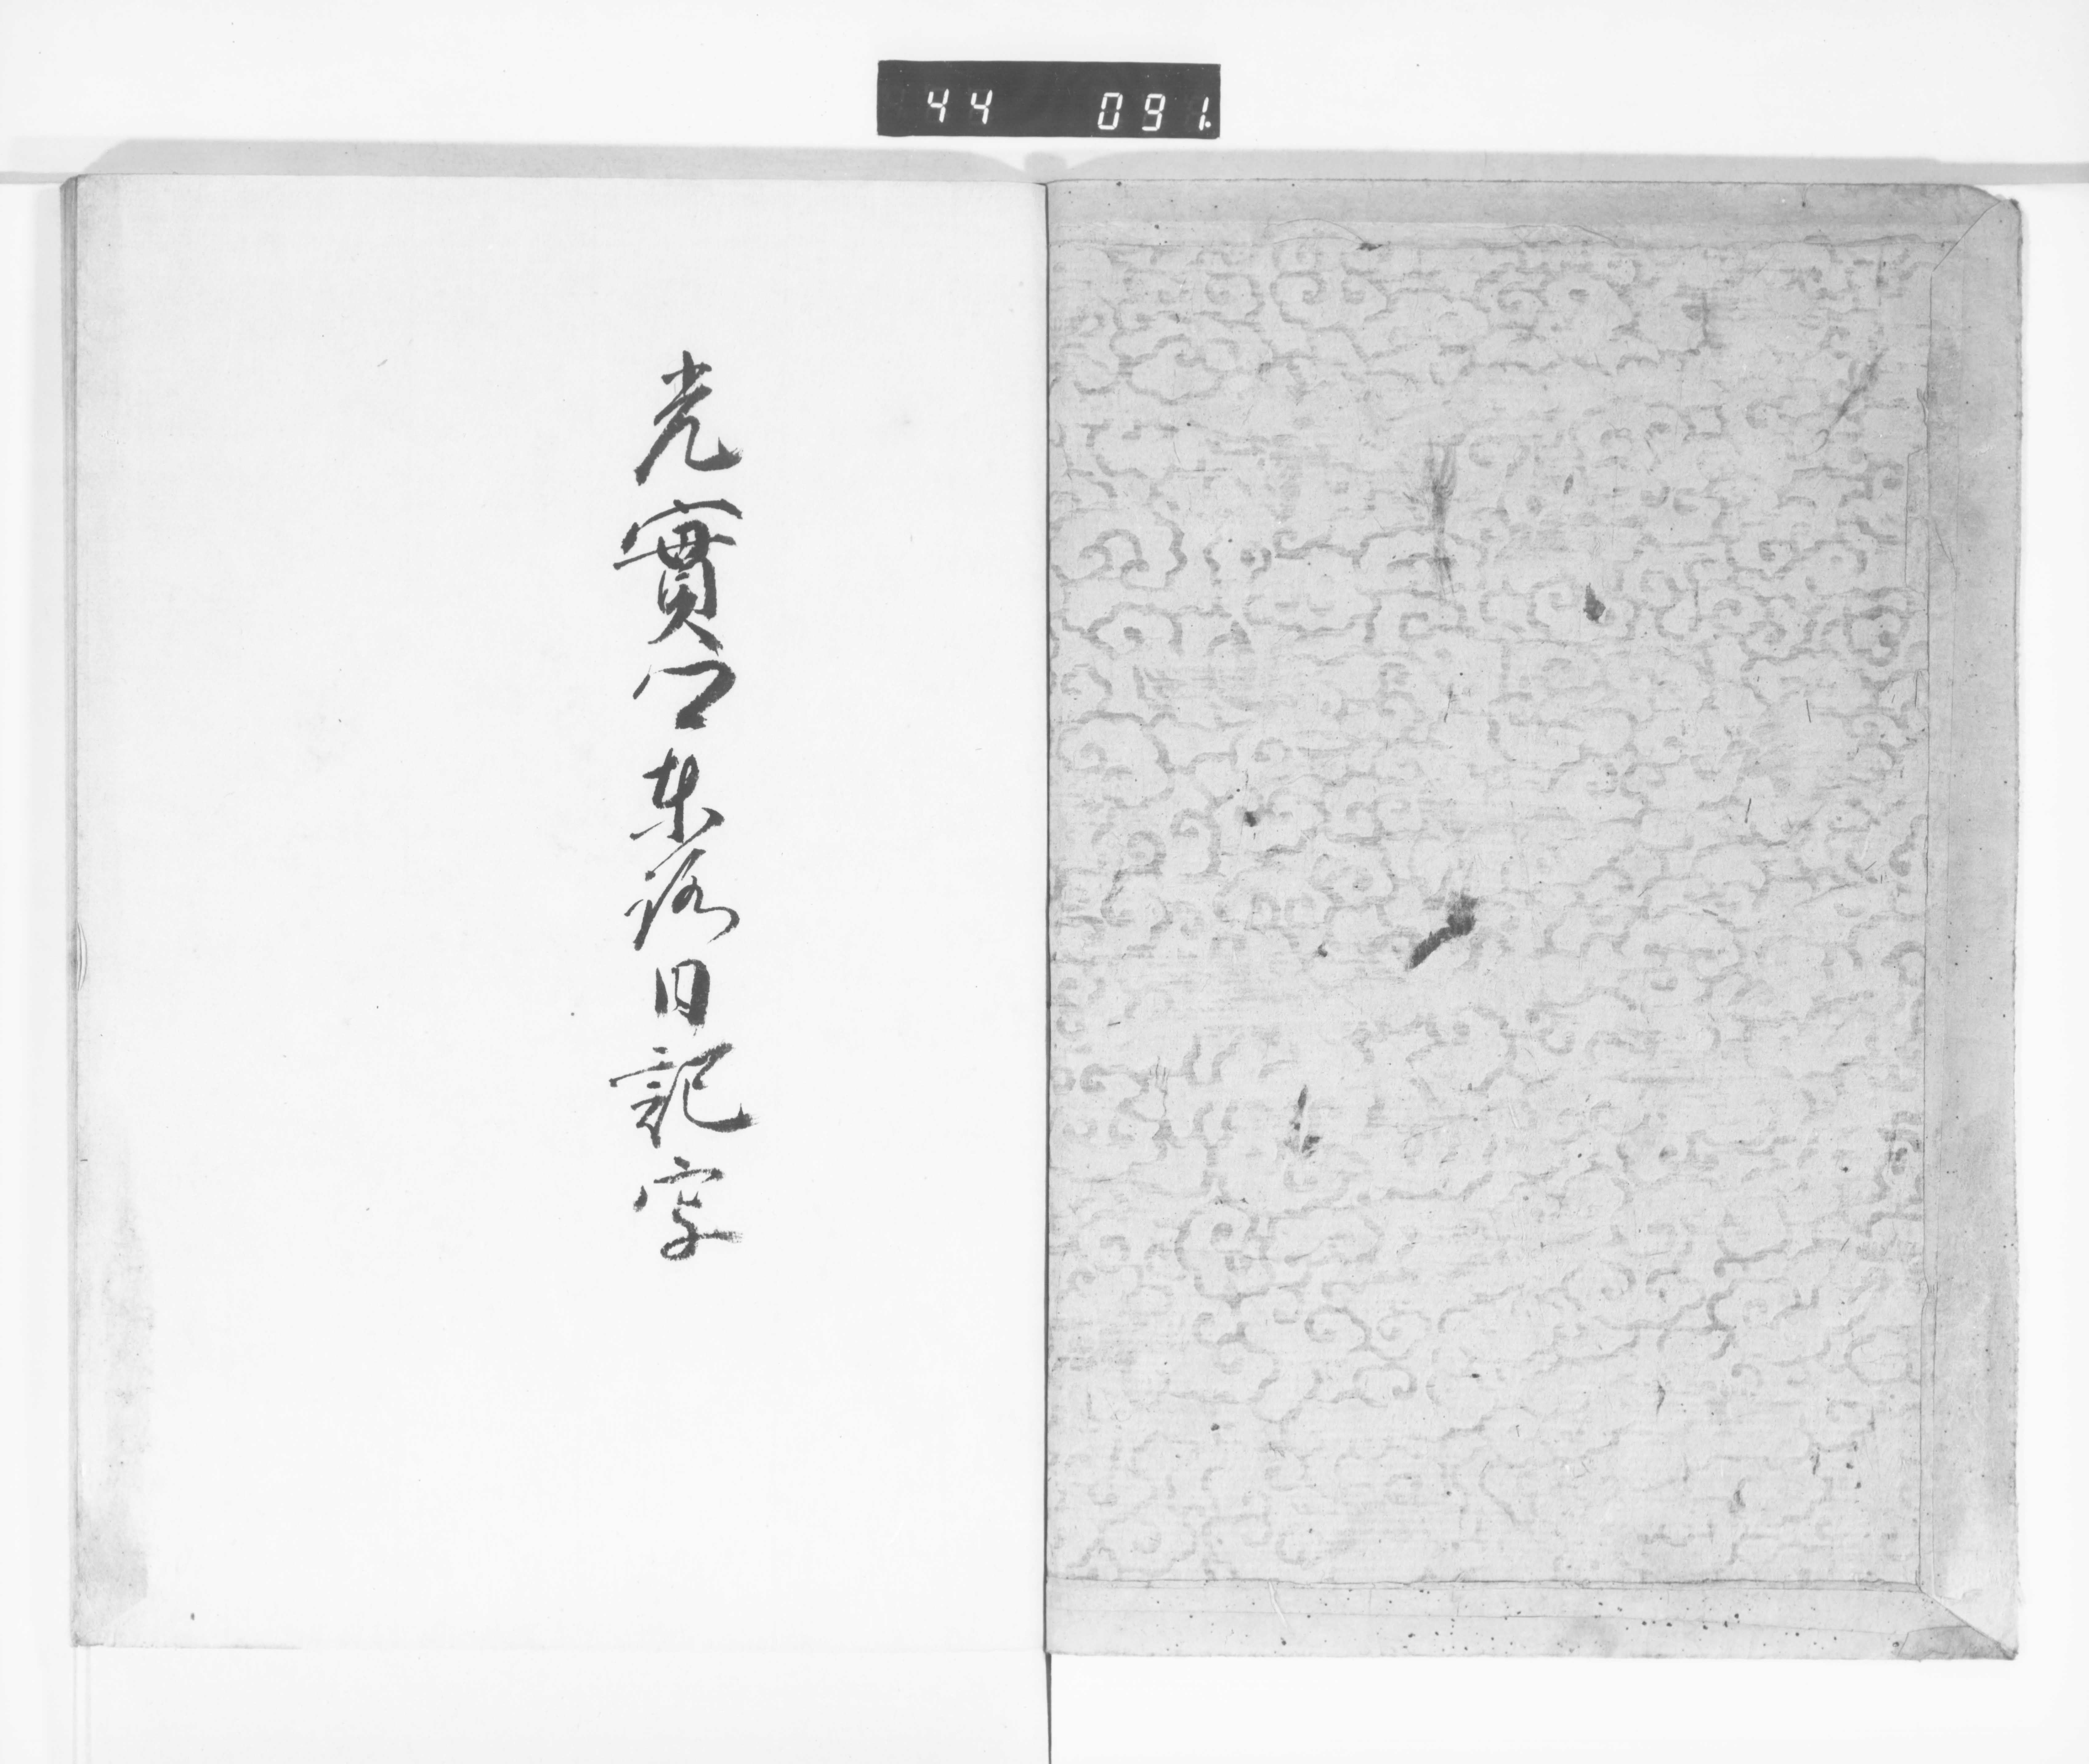 44 091.
光實公東行日記字